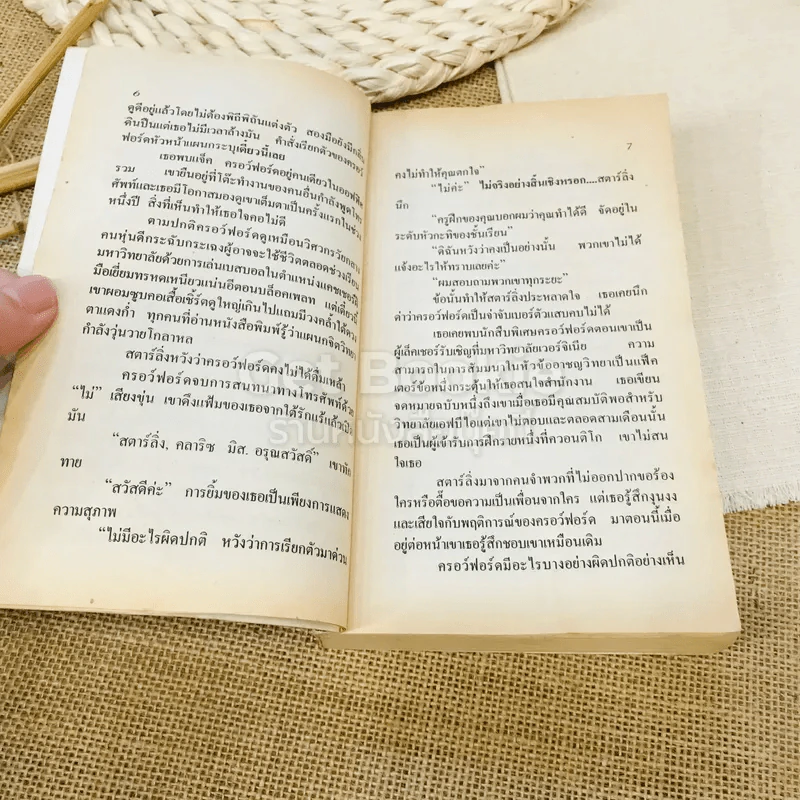 ๖
ดูดีอยู่แล้วโดยไม่ต้องพิถีพิถันแต่งตัว สองมือยังมีกลิ่น
ดินปืนแต่เธอไม่มีเวลาล้างมัน คำสั่งเรียกตัวของครอว์
ฟอร์ดหัวหน้าแผนกระบุเดี๋ยวนี้เลย
เธอพบแจ็ค ครอว์ฟอร์ดอยู่คนเดียวในออฟฟิศ
รวม เขายืนอยู่ที่โต๊ะทำงานของคนอื่นกำลังพูดโทร
ศัพท์และเธอมีโอกาสมองดูเขาเต็มตาเป็นครั้งแรกในช่วง
หนึ่งปี สิ่งที่เห็นทำให้เธอใจคอไม่ดี
ตามปกติครอว์ฟอร์ดดูเหมือนวิศวกรวัยกลาง
คนหุ่นดีกระฉับกระเฉงผู้อาจจะใช้ชีวิตตลอดช่วงเรียน
มหาวิทยาลัยด้วยการเล่นเบสบอลในตำแหน่งแคชเชอร์ฝี
มือเยี่ยมทรหดเหนียวแน่นอีตอนบล็อคเพลท แต่เดี๋ยวนี้
เขาผอมซูบคอเสื้อเชิ้ร์ตดูใหญ่เกินไปแถมมีวงคล้ำใต้ดวง
ตาแดงก่ำ ทุกคนที่อ่านหนังสือพิมพ์รู้ว่าแผนกจิตวิทยา
กำลังวุ่นวายโกลาหล
สตาร์ลิ่งหวังว่าครอว์ฟอร์ดคงไม่ได้ดื่มเหล้า
ครอว์ฟอร์ดจบการสนทนาทางโทรศัพท์ด้วย
“ไม่” เสียงขุ่น เขาดึงแฟ้มของเธอจากใต้รักแร้แล้วเปิด
มัน
“สตาร์ลิ่ง, คลาริซ มิส. อรุณสวัสดิ์” เขาทัก
ทาย
“สวัสดีค่ะ” การยิ้มของเธอเป็นเพียงการแสดง
ความสุภาพ
“ไม่มีอะไรผิดปกติ หวังว่าการเรียกตัวมาด่วน
7
คงไม่ทำให้คุณตกใจ”
“ไม่ค่ะ” ไม่จริงอย่างสิ้นเชิงหรอก....สตาร์ลิ่ง
นึก
“ครูฝึกของคุณบอกผมว่าคุณทำได้ดี จัดอยู่ใน
ระดับหัวกะทิของชั้นเรียน”
“ดิฉันหวังว่าคงเป็นอย่างนั้น พวกเขาไม่ได้
แจ้งอะไรให้ทราบเลยค่ะ”
“ผมสอบถามพวกเขาทุกระยะ”
ข้อนั้นทำให้สตาร์ลิ่งประหลาดใจ เธอเคยนึก
ด่าว่าครอว์ฟอร์ดเป็นจ่าจับเบอร์ตัวแสบคนไม่ได้
เธอเคยพบนักสืบพิเศษครอว์ฟอร์ดตอนเขาเป็น
ผู้เล็คเชอร์รับเชิญที่มหาวิทยาลัยเวอร์จิเนีย ความ
สามารถในการสัมมนาในหัวข้ออาชญวิทยาเป็นแฟ็ค
เตอร์ข้อหนึ่งกระตุ้นให้เธอสนใจสำนักงาน เธอเขียน
จดหมายฉบับหนึ่งถึงเขาเมื่อเธอมีคุณสมบัติพอสำหรับ
วิทยาลัยเอฟบีไอแต่เขาไม่ตอบและตลอดสามเดือนนั้น
เธอเป็นผู้เข้ารับการฝึกรายหนึ่งที่ควอนติโก เขาไม่สน
ใจเธอ
สตาร์ลิ่งมาจากคนจำพวกที่ไม่ออกปากขอร้อง
ใครหรือตื๊อขอความเป็นเพื่อนจากใคร แต่เธอรู้สึกงุนงง
และเสียใจกับพฤติการณ์ของครอว์ฟอร์ด มาตอนนี้เมื่อ
อยู่ต่อหน้าเขาเธอรู้สึกชอบเขาเหมือนเดิม
ครอว์ฟอร์ดมีอะไรบางอย่างผิดปกติอย่างเห็น